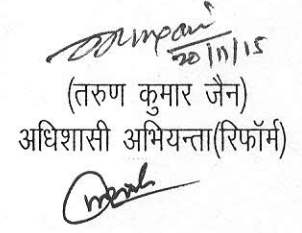 20/11/15
(तरुण कुमार जैन)
अधिशासी अभियन्ता(रिफॉर्म)